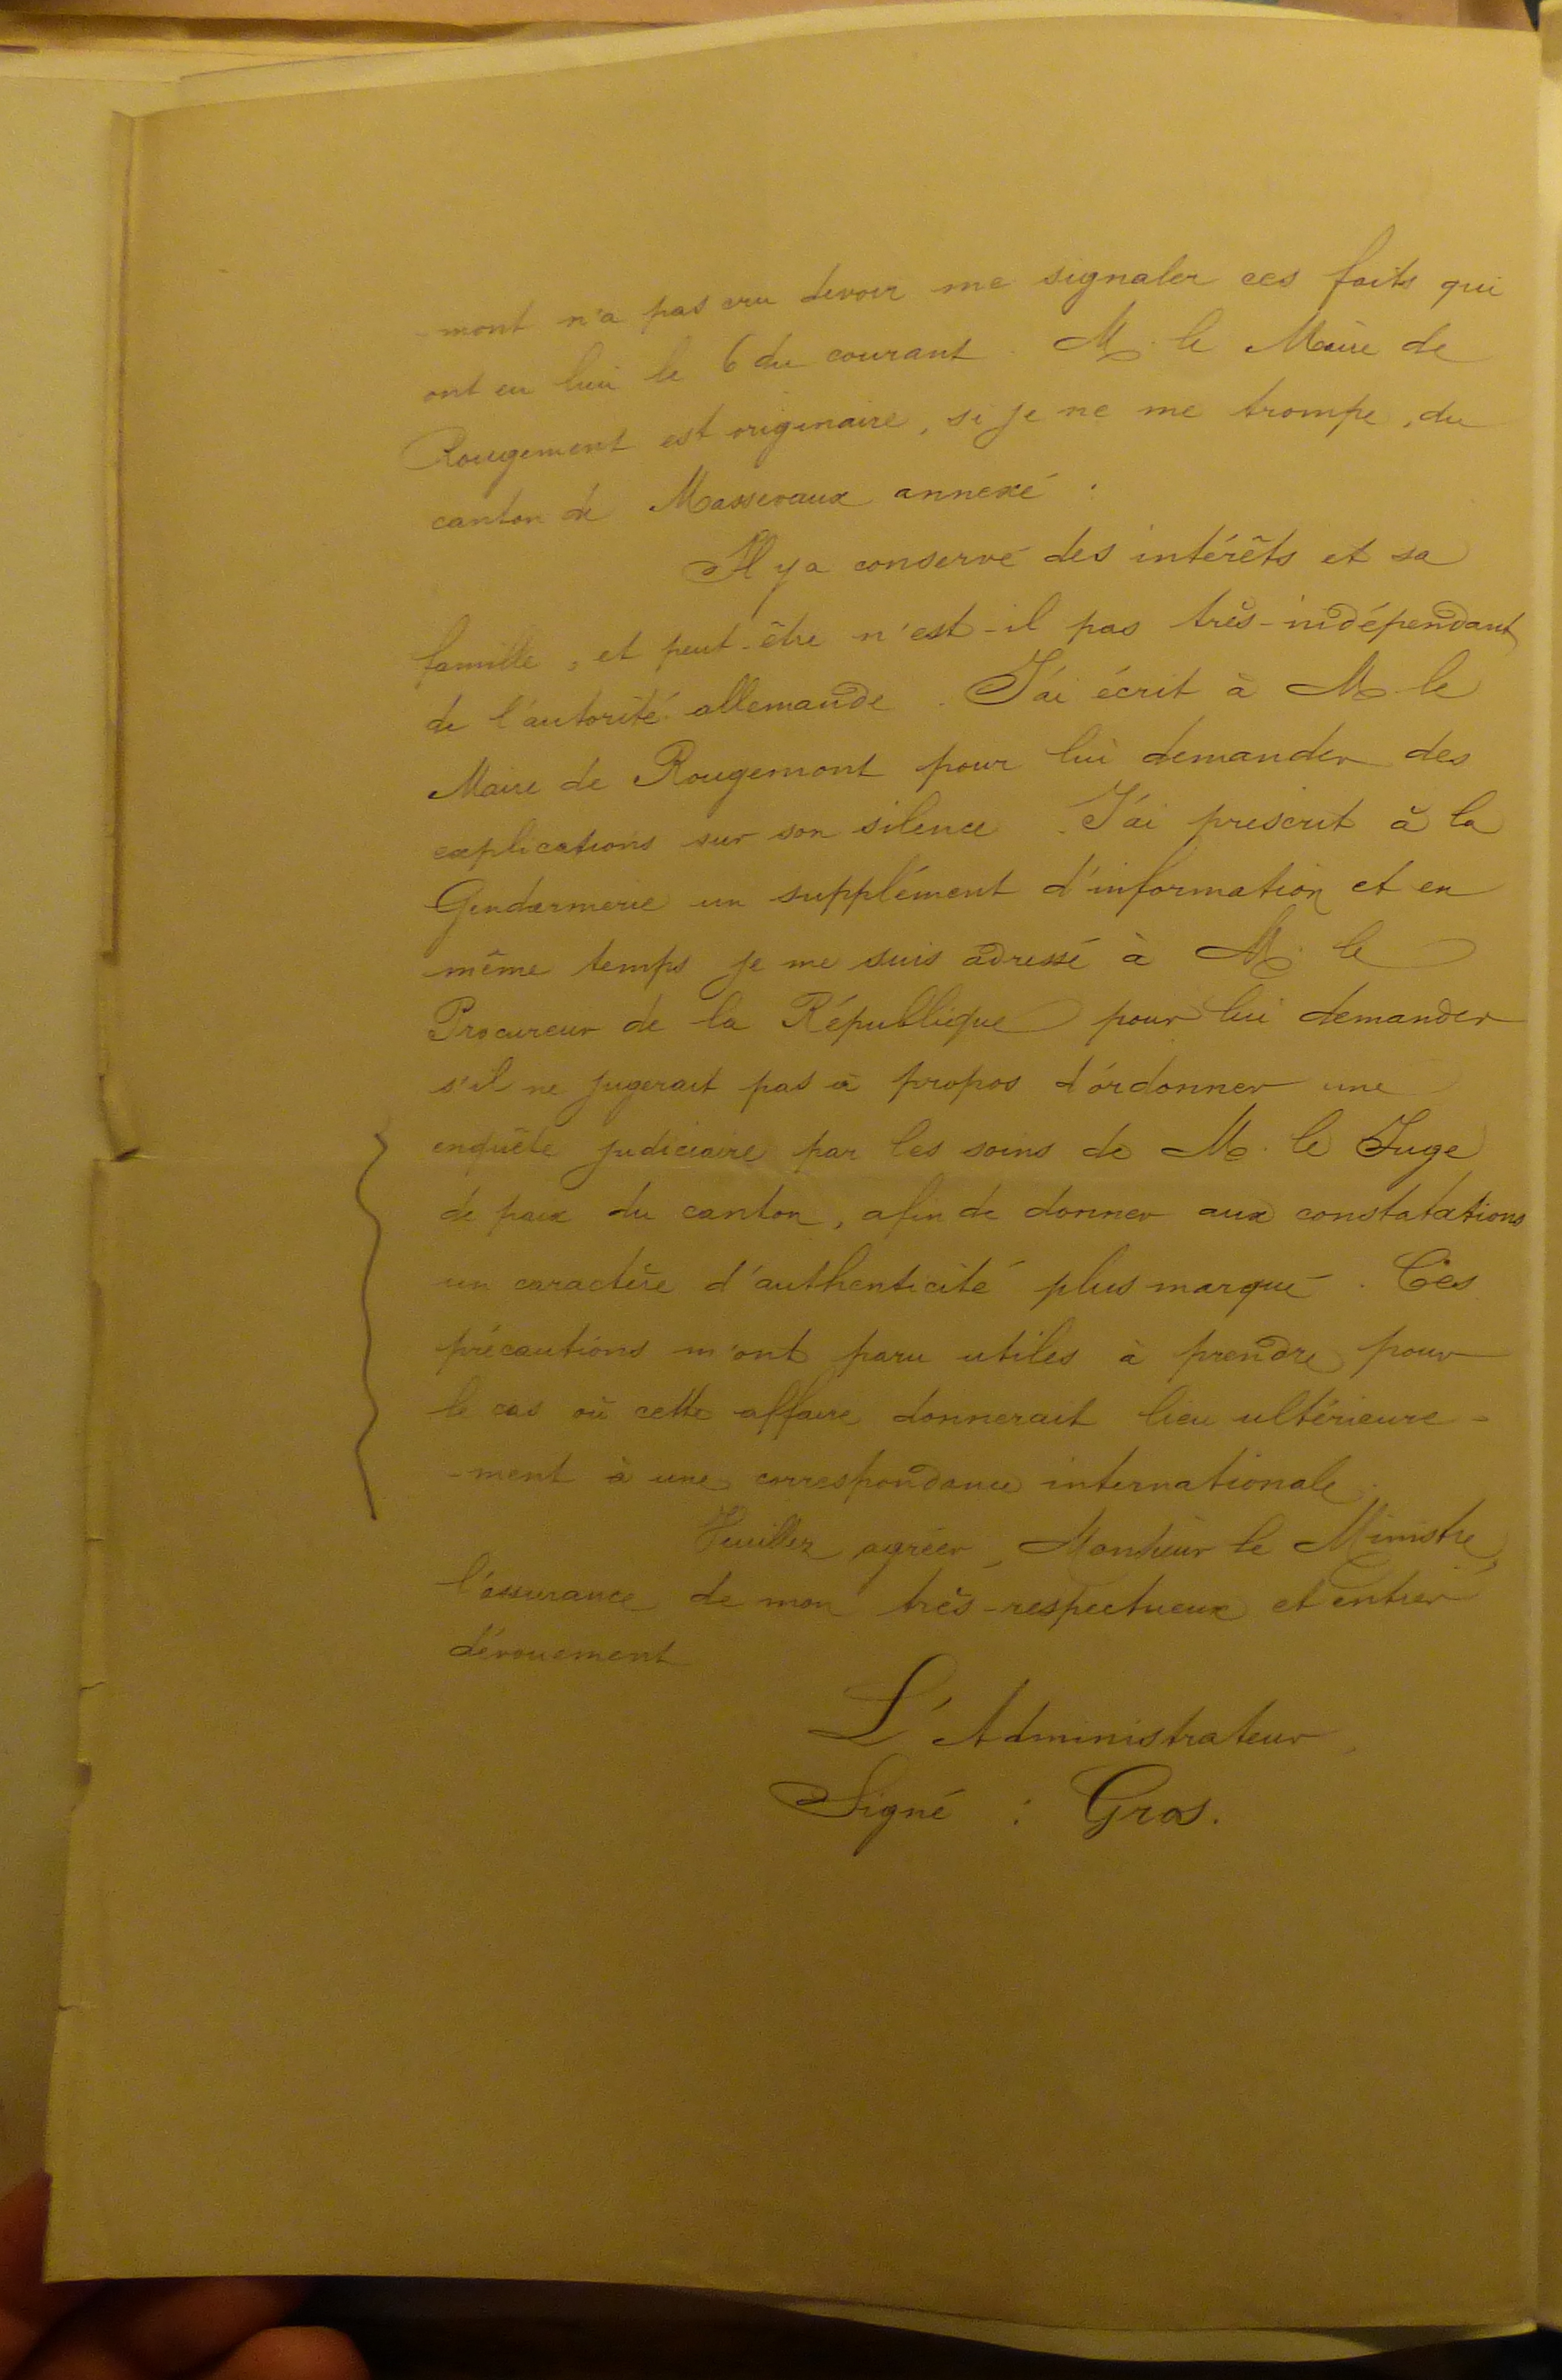 -mont n'a pas cru devoir me signaler ces faits qui
ont eu lieu le 6 du courant. M. le Maire de
Rougemont est originaire, si je ne me trompe, du
canton de Massevaux annexé.
Il y a conservé des intérêts et sa
famille, et peut-être n'est-il pas très-indépendant
de l'autorité allemande. J'ai écrit à M. le
Maire de Rougemont pour lui demander des
explications sur son silence. J'ai prescrit à la
Gendarmerie un supplément d'information et en
même temps je me suis adressé à M. le
Procureur de la République pour lui demander
s'il ne jugerait pas à propos d'ordonner une
enquête judiciaire par les soins de M. le Juge
de paix du canton, afin de donner aux constatations
un caractère d'authenticité plus marqué. Ces
précautions m'ont paru utiles à prendre pour
le cas où cette affaire donnerait lieu ultérieure-
-ment à une correspondance internationale.
Veuillez agréer, Monsieur le Ministre,
l'assurance de mon très-respectueux et entier
dévouement
L'Administrateur,
Signé : Gros.